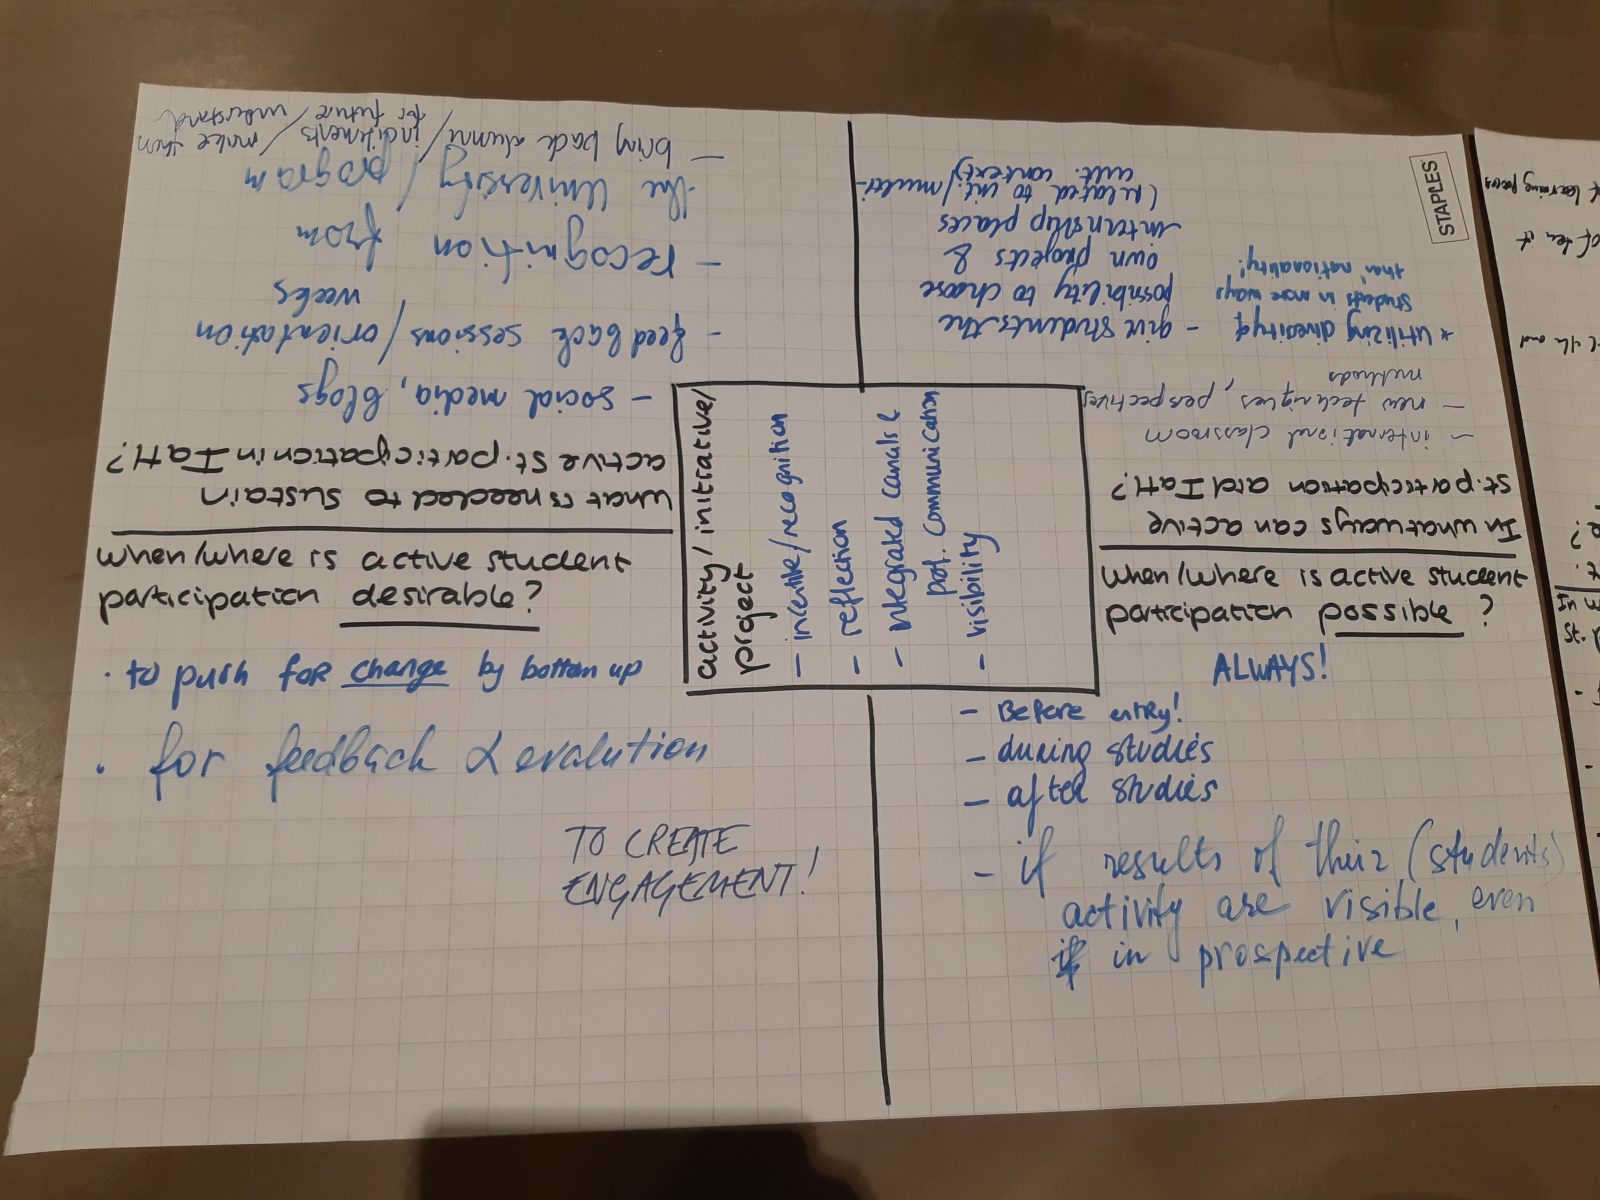 When/where is active student
participation desirable?
· to push for change by bottom up
· for feedback & evalution
TO CREATE
ENGAGEMENT!
When/where is active student
participation possible?
ALWAYS!
- Before entry!
- during studies
- after studies
- if results of their (students)
activity are visible, even
in prospective
activity/initiative/
project
- incentive/recognition
- reflection
- integrated canals &
pot. communication
- visibility
What is needed to sustain
active st. participation in IatH?
- social media, blogs
- feedback sessions/orientation
weeks
- recognition from
the University/program
- bring back alumni/incitements/make them
for future/understand
In what ways can active
st. participation aid IatH?
- international classroom
- new techniques, perspectives,
methods
* utilizing diversity of
students in more ways
than 'nationality'!
- give students the
possibility to choose
own projects &
internship places
(related to int./multi-
cult. context)
STAPLES
of learning
of
and